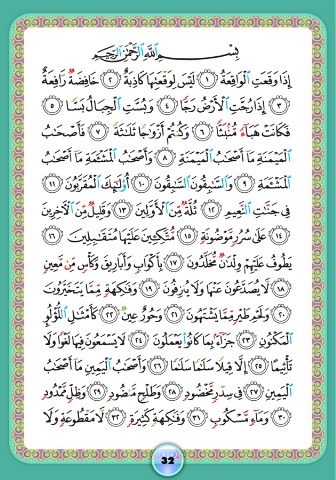 بِسْمِ اللَّهِ الرَّحْمَٰنِ الرَّحِيمِ
إِذَا وَقَعَتِ الْوَاقِعَةُ ١ لَيْسَ لِوَقْعَتِهَا كَاذِبَةٌ ٢ خَافِضَةٌ رَافِعَةٌ
٣ إِذَا رُجَّتِ الْأَرْضُ رَجًّا ٤ وَبُسَّتِ الْجِبَالُ بَسًّا ٥
فَكَانَتْ هَبَاءً مُنْبَثًّا ٦ وَكُنْتُمْ أَزْوَاجًا ثَلَاثَةً ٧ فَأَصْحَابُ
الْمَيْمَنَةِ مَا أَصْحَابُ الْمَيْمَنَةِ ٨ وَأَصْحَابُ الْمَشْأَمَةِ مَا أَصْحَابُ
الْمَشْأَمَةِ ٩ وَالسَّابِقُونَ السَّابِقُونَ ١٠ أُولَٰئِكَ الْمُقَرَّبُونَ ١١
فِي جَنَّاتِ النَّعِيمِ ١٢ ثُلَّةٌ مِنَ الْأَوَّلِينَ ١٣ وَقَلِيلٌ مِنَ الْآخِرِينَ
١٤ عَلَىٰ سُرُرٍ مَوْضُونَةٍ ١٥ مُتَّكِئِينَ عَلَيْهَا مُتَقَابِلِينَ ١٦
يَطُوفُ عَلَيْهِمْ وِلْدَانٌ مُخَلَّدُونَ ١٧ بِأَكْوَابٍ وَأَبَارِيقَ وَكَأْسٍ مِنْ مَعِينٍ
١٨ لَا يُصَدَّعُونَ عَنْهَا وَلَا يُنْزِفُونَ ١٩ وَفَاكِهَةٍ مِمَّا يَتَخَيَّرُونَ
٢٠ وَلَحْمِ طَيْرٍ مِمَّا يَشْتَهُونَ ٢١ وَحُورٌ عِينٌ ٢٢ كَأَمْثَالِ اللُّؤْلُؤِ
الْمَكْنُونِ ٢٣ جَزَاءً بِمَا كَانُوا يَعْمَلُونَ ٢٤ لَا يَسْمَعُونَ فِيهَا لَغْوًا وَلَا
تَأْثِيمًا ٢٥ إِلَّا قِيلًا سَلَامًا سَلَامًا ٢٦ وَأَصْحَابُ الْيَمِينِ مَا أَصْحَابُ
الْيَمِينِ ٢٧ فِي سِدْرٍ مَخْضُودٍ ٢٨ وَطَلْحٍ مَنْضُودٍ ٢٩ وَظِلٍّ مَمْدُودٍ
٣٠ وَمَاءٍ مَسْكُوبٍ ٣١ وَفَاكِهَةٍ كَثِيرَةٍ ٣٢ لَا مَقْطُوعَةٍ وَلَا
32